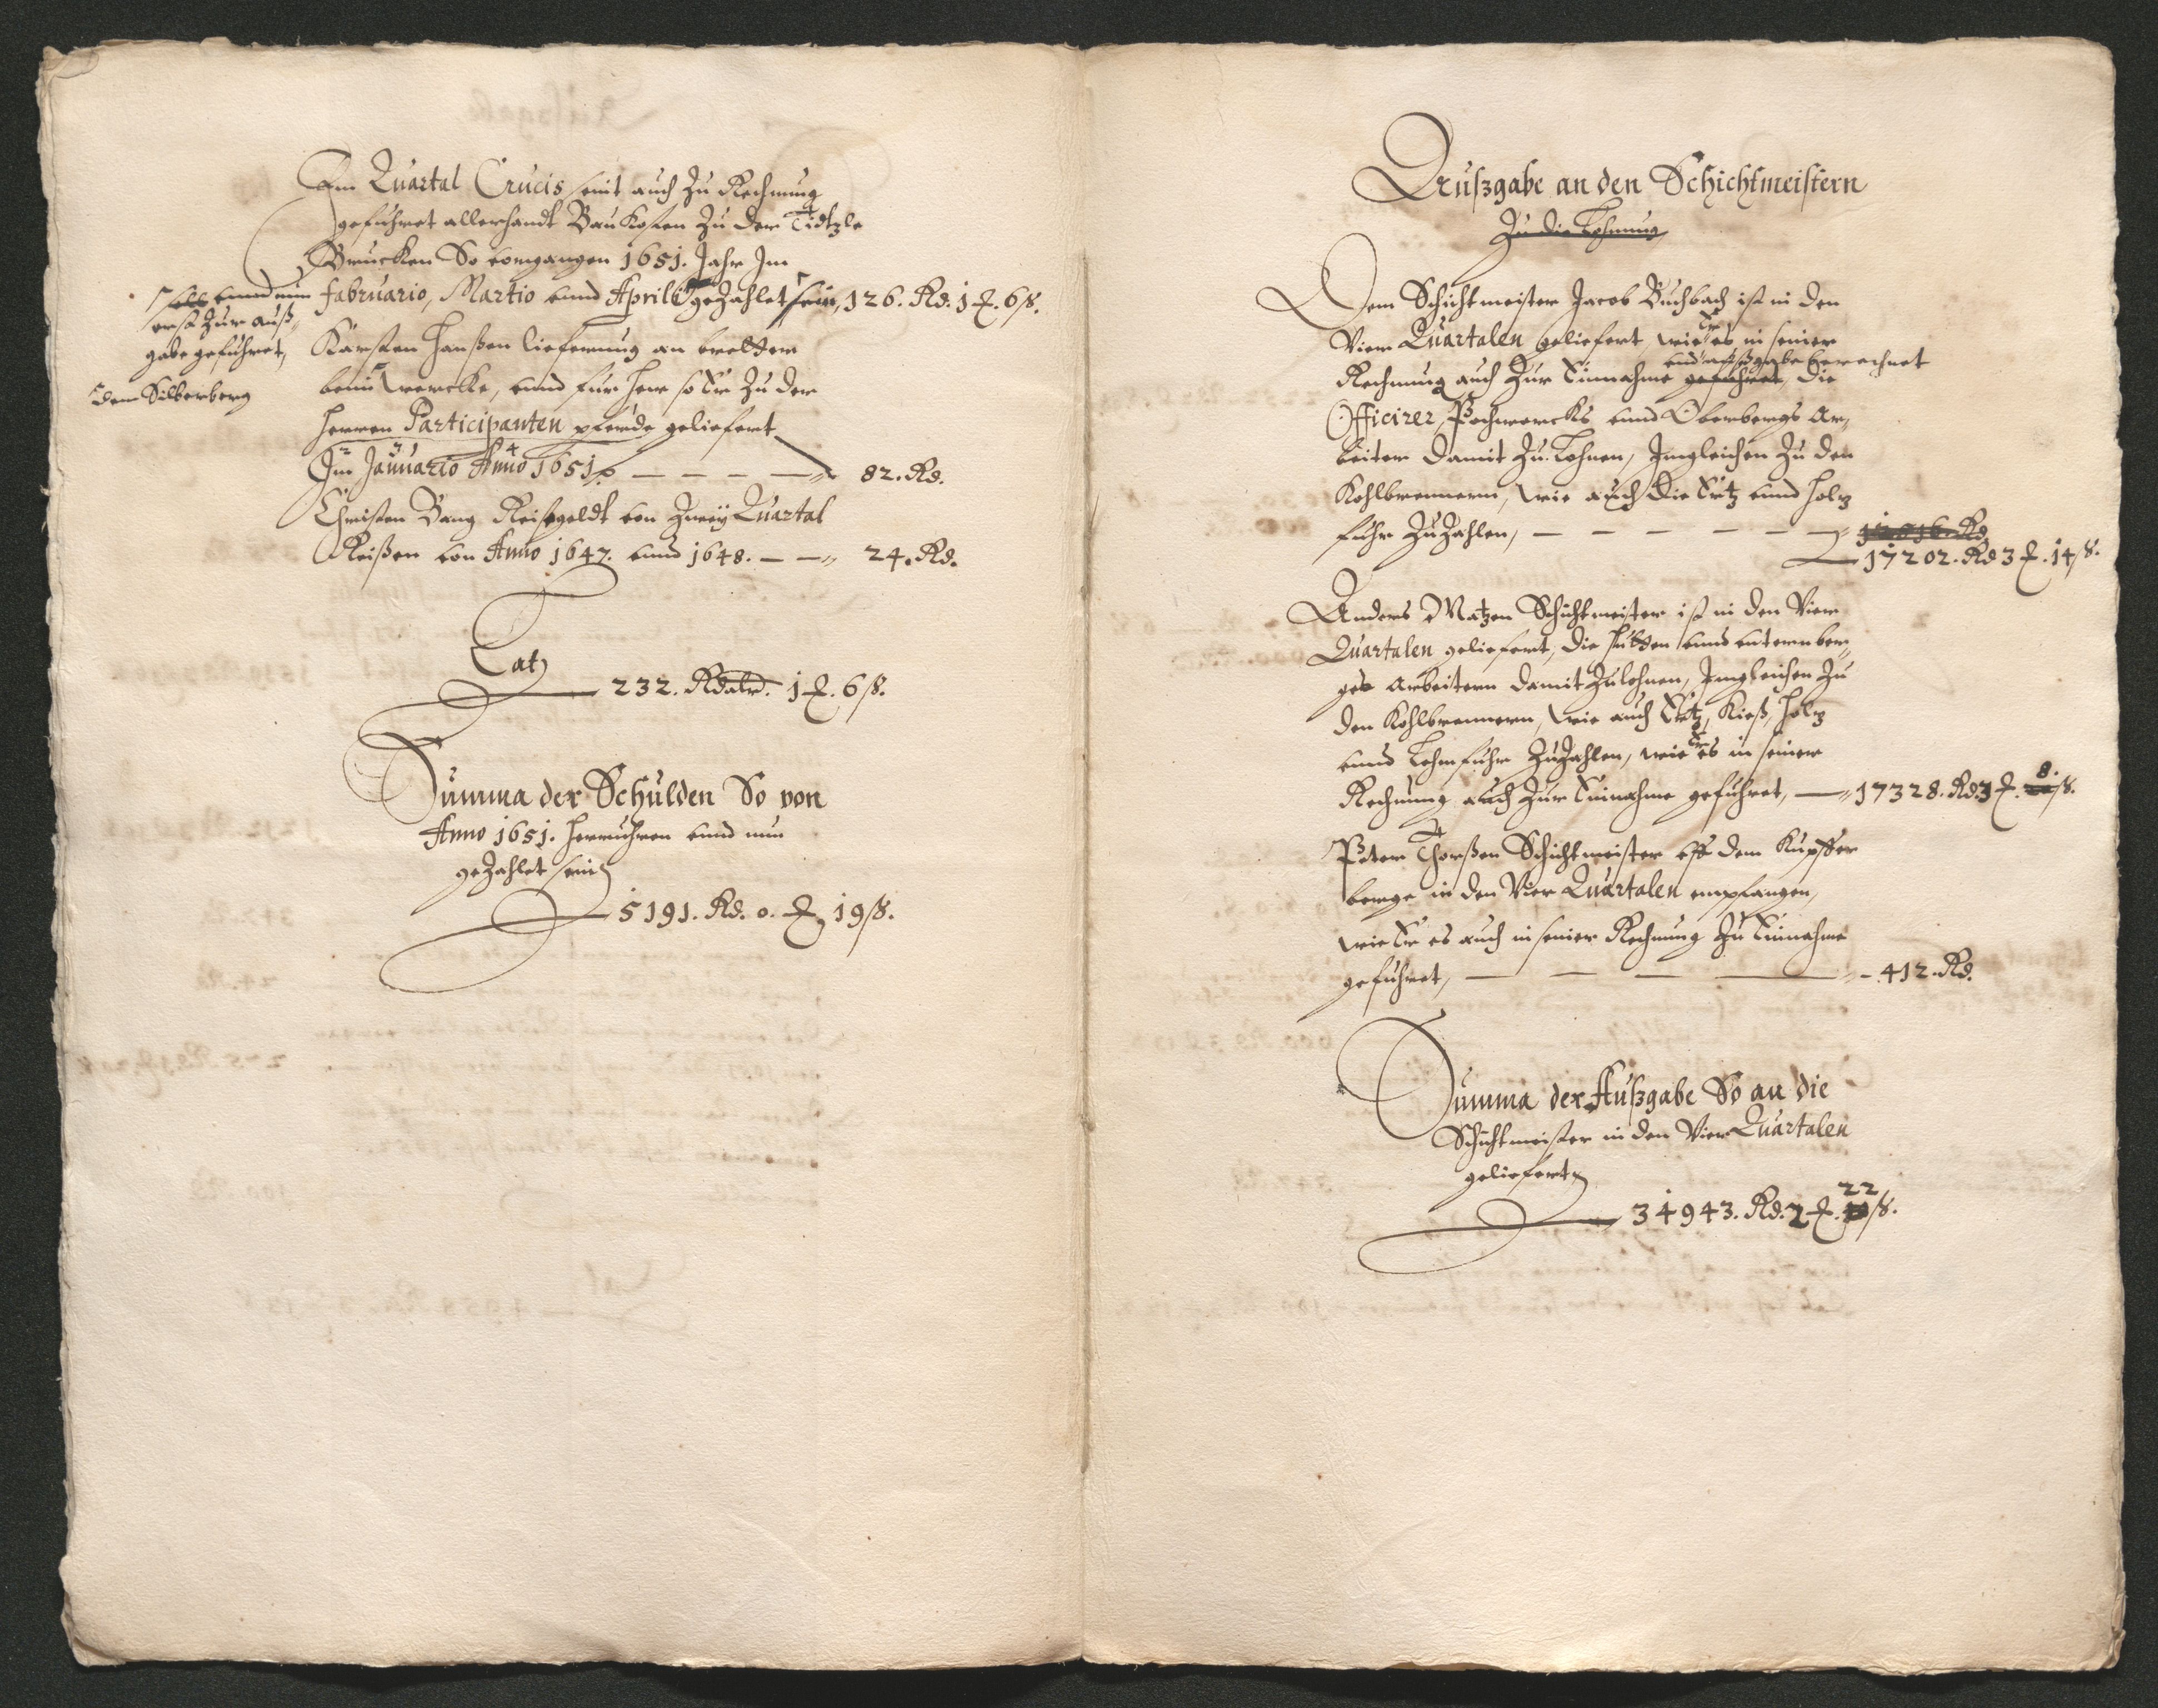 Im Quartal Crucis seint auch zu Rechnung
gefuhret allerhandt Baukosten zu der
Brucken So vorgangen 1651. Jahr Im
Februario, Martio unnd Aprili gezahlet sein, 126. Rd. 1 ℔. 6 ß.
unnd nun
erst zur auß„
gabe gefuhret,
Karsten Hanßen lieferung an brettern
beim wercke, unnd fur Heu so Er zu der
dem Silberberg
Herren Participanten pferde geliefert
Im Januario Anno 1651. — — — — 82. Rd.
Christen Bang Reißgeldt von Zweÿ Quartal
Reißen von Anno 1647. unnd 1648. — — 24. Rd.
Lat
232. Rdalr. 1 ℔. 6 ß.
Summa der Schulden So von
Anno 1651. herruhren unnd nun
gezahlet sein
5191. Rd. 0. ℔ 19 ß.
Außgabe an den Schichtmeistern
Zu die Lohnung
Dem Schichtmeister Jacob Buchbach ist in den
Vier Quartalen geliefert, wie Er es in seiner
und außgabe berechnet
Rechnung auch zur Einnahme gefuhret, die
Officirer, Pochwercks unnd Oberbergs Ar„
beiter damit zu Lohnen, Imgleichen zu den
Kohlbrennern, wie auch die Ertz unnd holtz
fuhr zuzahlen, — — — — — —
17202. Rd 3 ℔. 14 ß.
Anders Matzen Schichtmeister ist in den Vier
Quartalen geliefert, die Hutten unnd unternber„
ges Arbeitern damit Zulohnen, Imgleichen Zu
den Kohlbrennern, wie auch Ertz, Kieß, holtz
unnd Lehmfuhr zuzahlen, wie Er es in seiner
Rechnung auch zur Einnahme gefuhret, — 17328. Rd. 3 ℔. 8. ß.
Peter Thorßen Schichtmeister uff dem Kupffer
berge in den Vier Quartalen empfangen,
wie Er es auch in seiner Rechnung zu Einnahme
gefuhret, — — — — 412. Rd.
Summa der Außgabe So an die
Schichtmeister in den Vier Quartalen
geliefert
34943. Rd. 2 ℔. 22 ß.